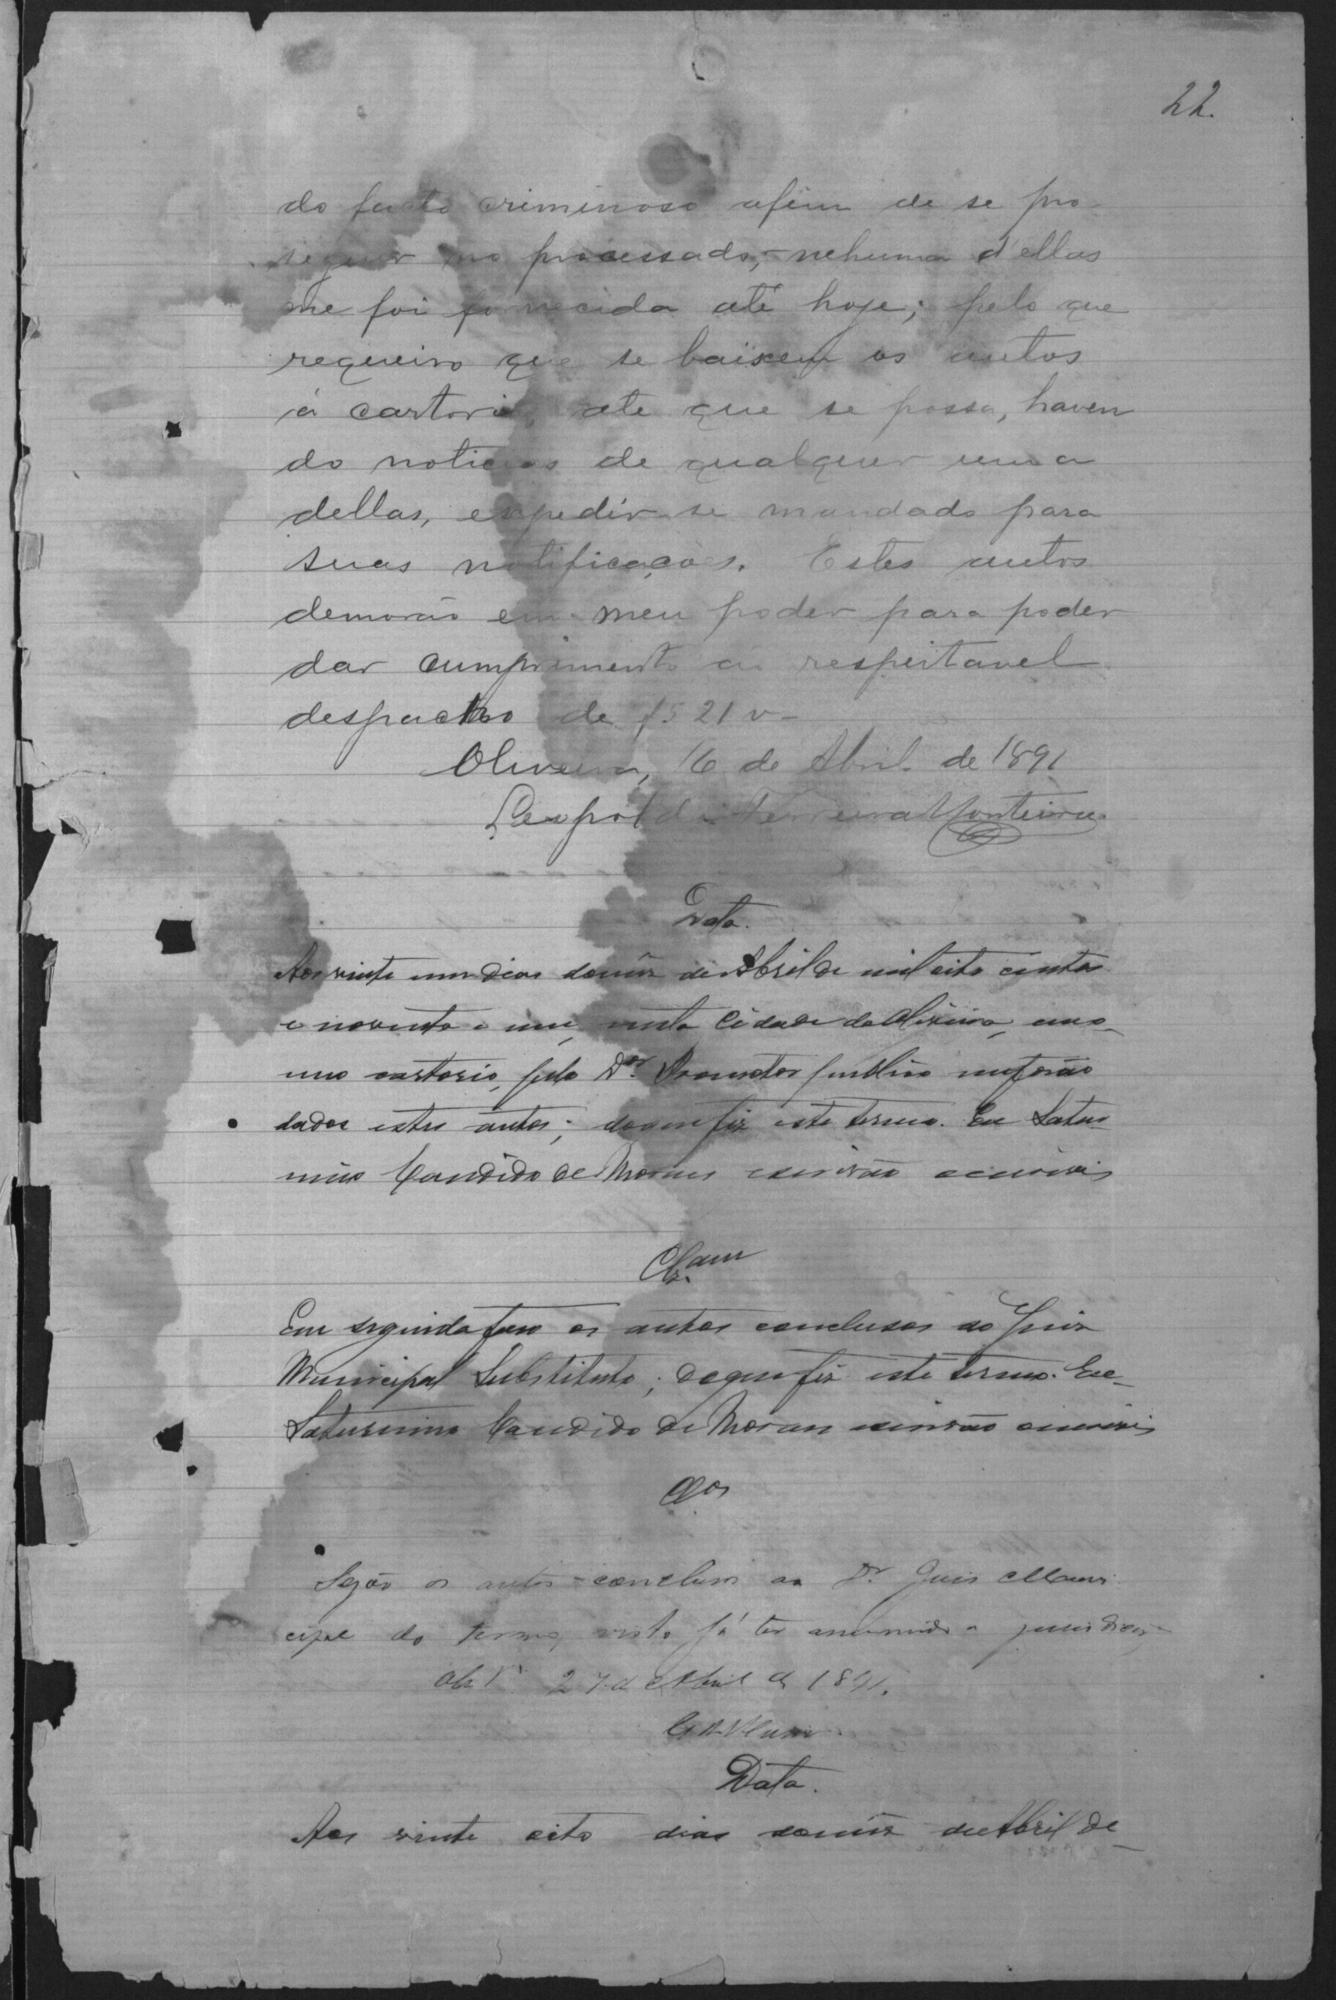 22.
do facto criminoso afim de se pro-
seguir no processado, nehuma d'ellas
me foi fornecida até hoje; pelo que
requeiro que se baixem os autos
á cartorio, ate que se possa, haven
do noticias de qualquer uma
dellas, expedir-se mandado para
suas notificações. Estes autos
demorão em meu poder para poder
dar cumprimento ao respeitavel
despacho de fs 21 v-
Oliveira, 16 de Abril de 1891
Leopoldo Ferreira Monteiro
Data.
Aos vinte um dias do mez de Abril de mil oito centos
e noventa e um, nesta Cidade da Oliveira, em o
meo cartorio, pelo Dr. Promotor publico me forão
dados estes autos; do que fiz este termo. Eu Satur
nino Candido de Moraes escrivão escrivi
Clsam
Em seguida faso os autos conclusos ao Juiz
Municipal Substituto; de que fiz este termo. Eu
Saturnino Candido de Moraes escrivão escrivi
Clos
Sejão os autos conclusos ao Dr. Juis Muni
cipal do termo, visto já ter assumido a
27 de Abril de 1891.
Data.
Aos vinte oito dias do mez de Abril de